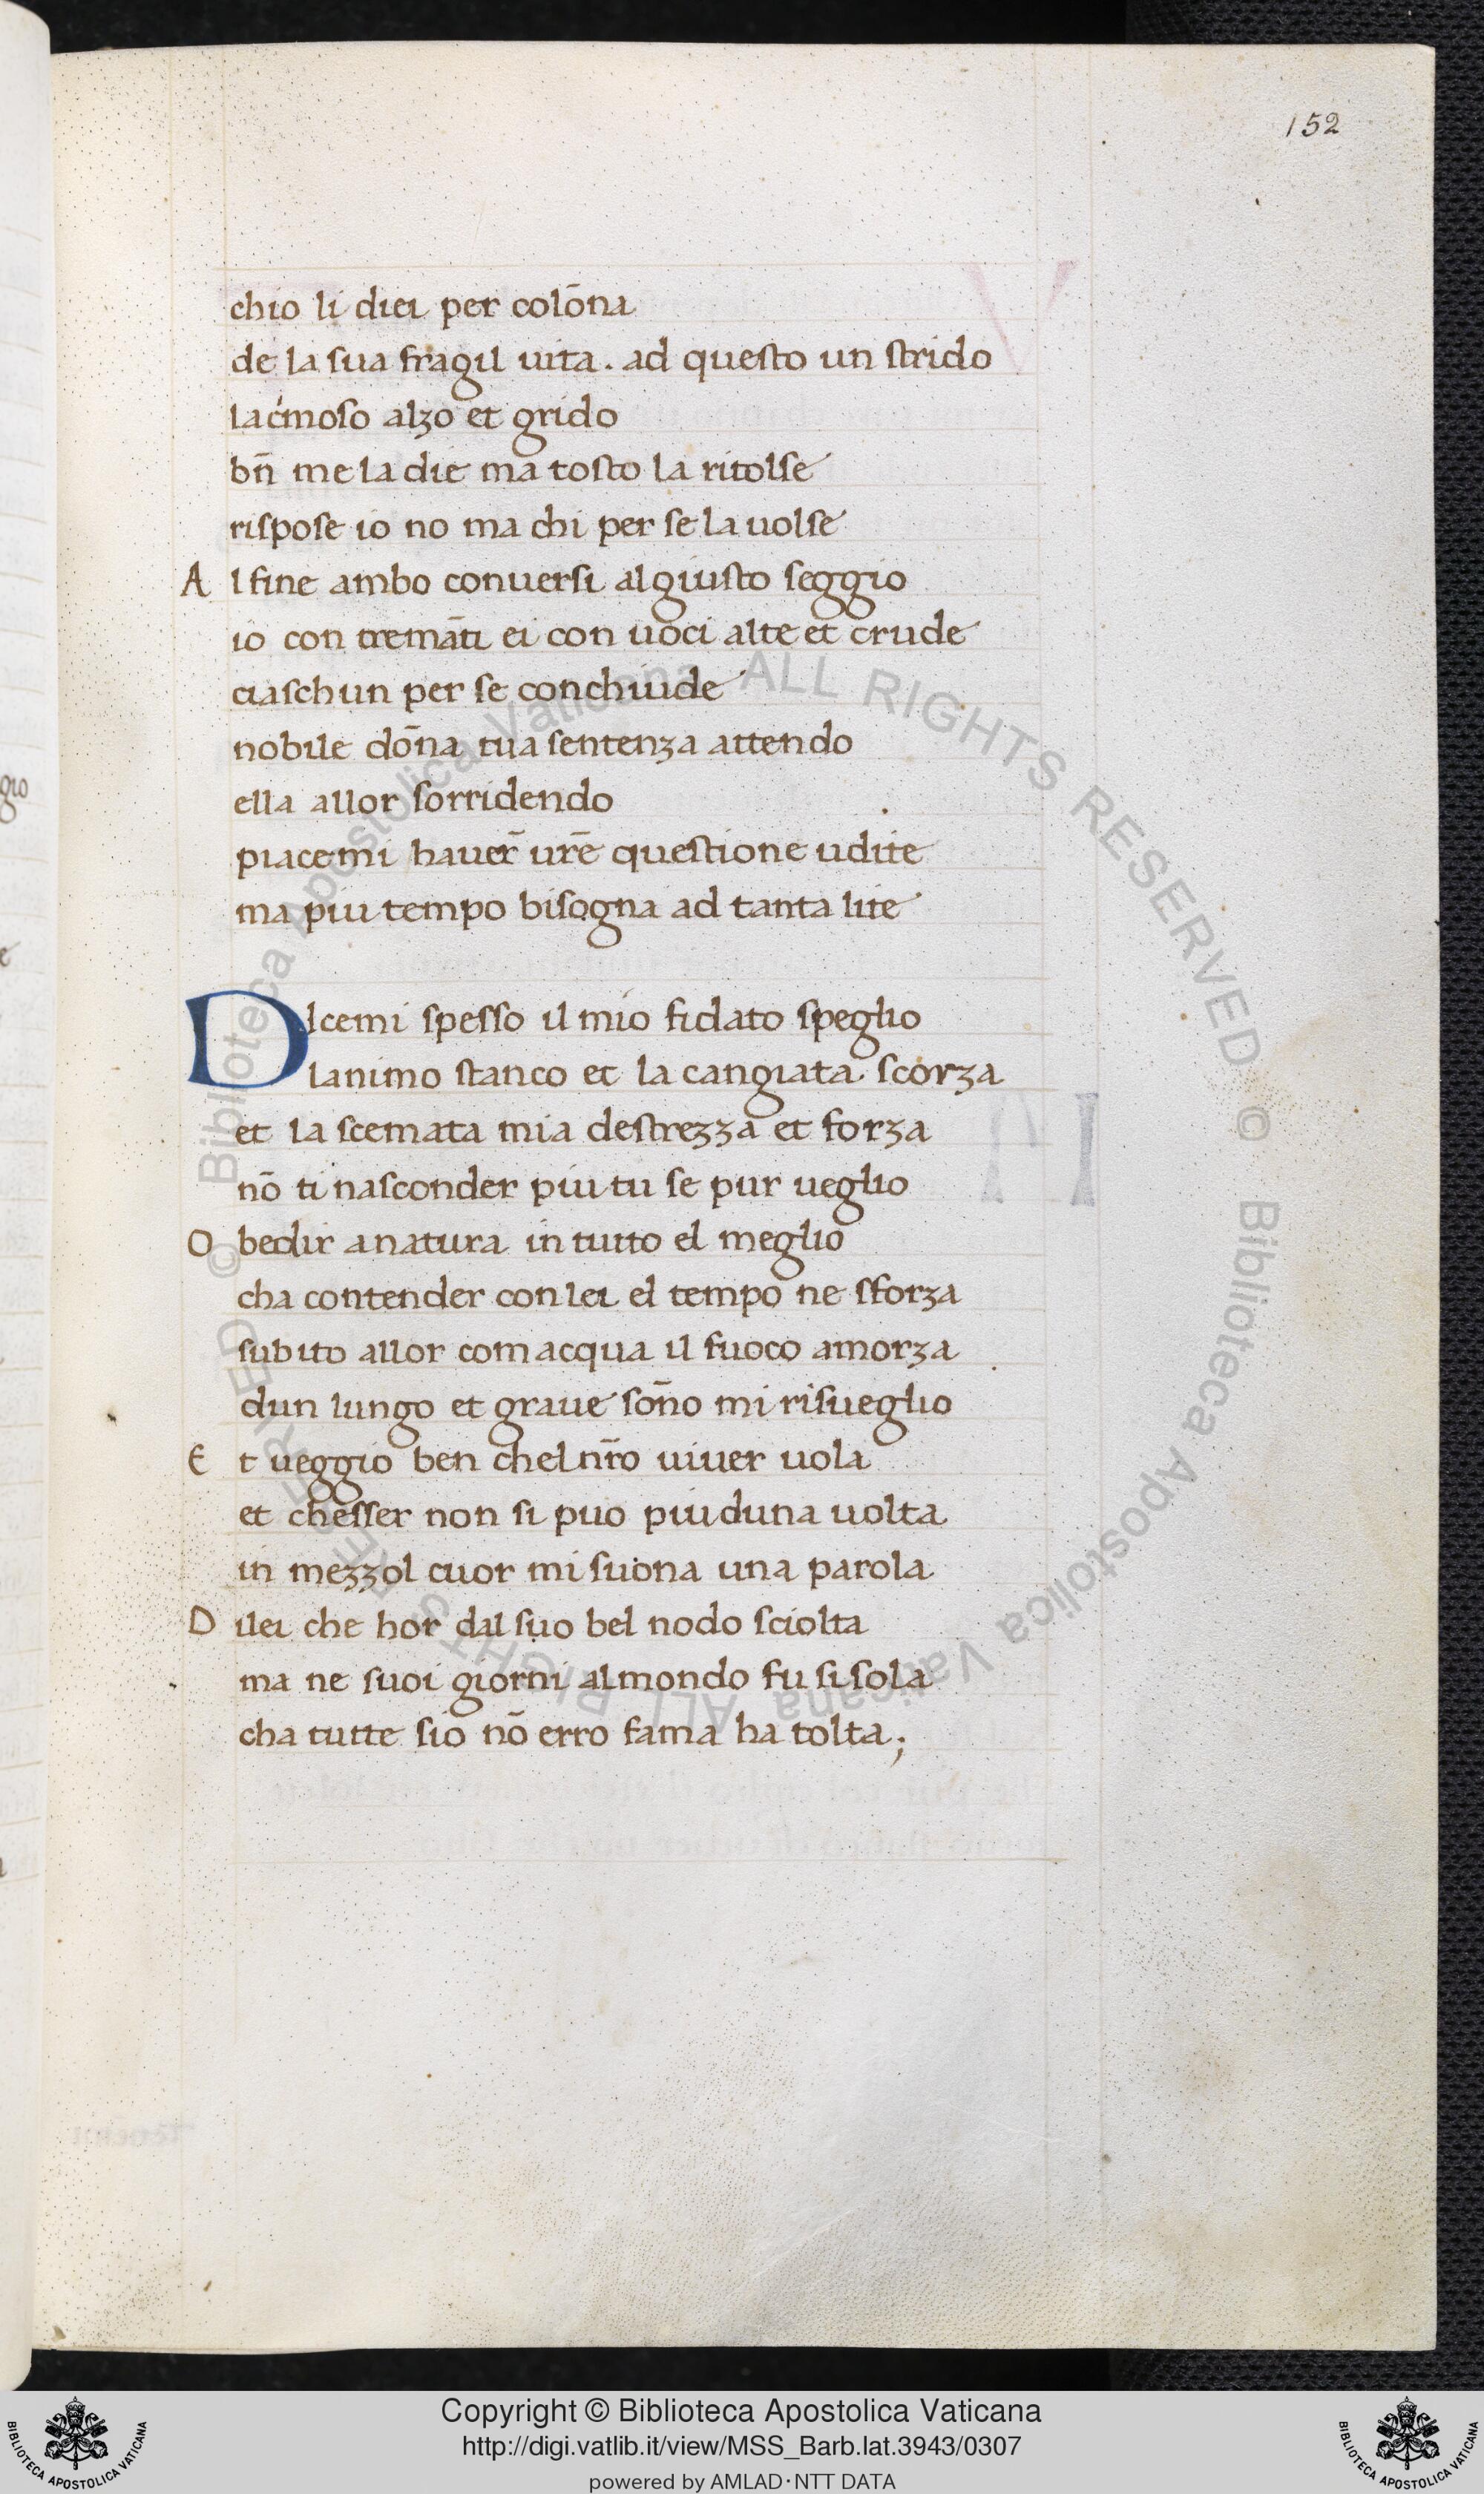 152
chio li diei per colōna
de la sua fragil uita. ad questo un strido
lac̄moso alzo et grido
bn̄ me la die ma tosto la ritolse
rispose io no ma chi per se la uolse
A l fine ambo conuersi al giusto seggio
io con tremāti ei con uoci alte et crude
ciaschun per se conchiude
nobile dōna tua sentenza attendo
ella allor sorridendo
piacemi hauer̄ ur̄e questione udite
ma piu tempo bisogna ad tanta lite
D lcemi spesso il mio fidato speglio
lanimo stanco et la cangiata scorza
et la scemata mia destrezza et forza
nō ti nasconder piu tu se pur ueglio
O bedir a natura in tutto el meglio
cha contender con lei el tempo ne sforza
subito allor com acqua il fuoco amorza
dun lungo et graue son̄o mi risueglio
E t ueggio ben chel nr̄o uiuer uola
et chesser non si puo piu duna uolta
in mezzol cuor mi suona una parola
D ilei che hor dal suo bel nodo sciolta
ma ne suoi giorni al mondo fu si sola
cha tutte sio nō erro fama ha tolta;
Copyright © Biblioteca Apostolica Vaticana
http://digi.vatlib.it/view/MSS_Barb.lat.3943/0307
powered by AMLAD·NTT DATA
BIBLIOTECA APOSTOLICA VATICANA
BIBLIOTECA APOSTOLICA VATICANA
© Biblioteca Apostolica Vaticana ALL RIGHTS RESERVED © Biblioteca Apostolica Vaticana ALL RIGHTS RESERVED